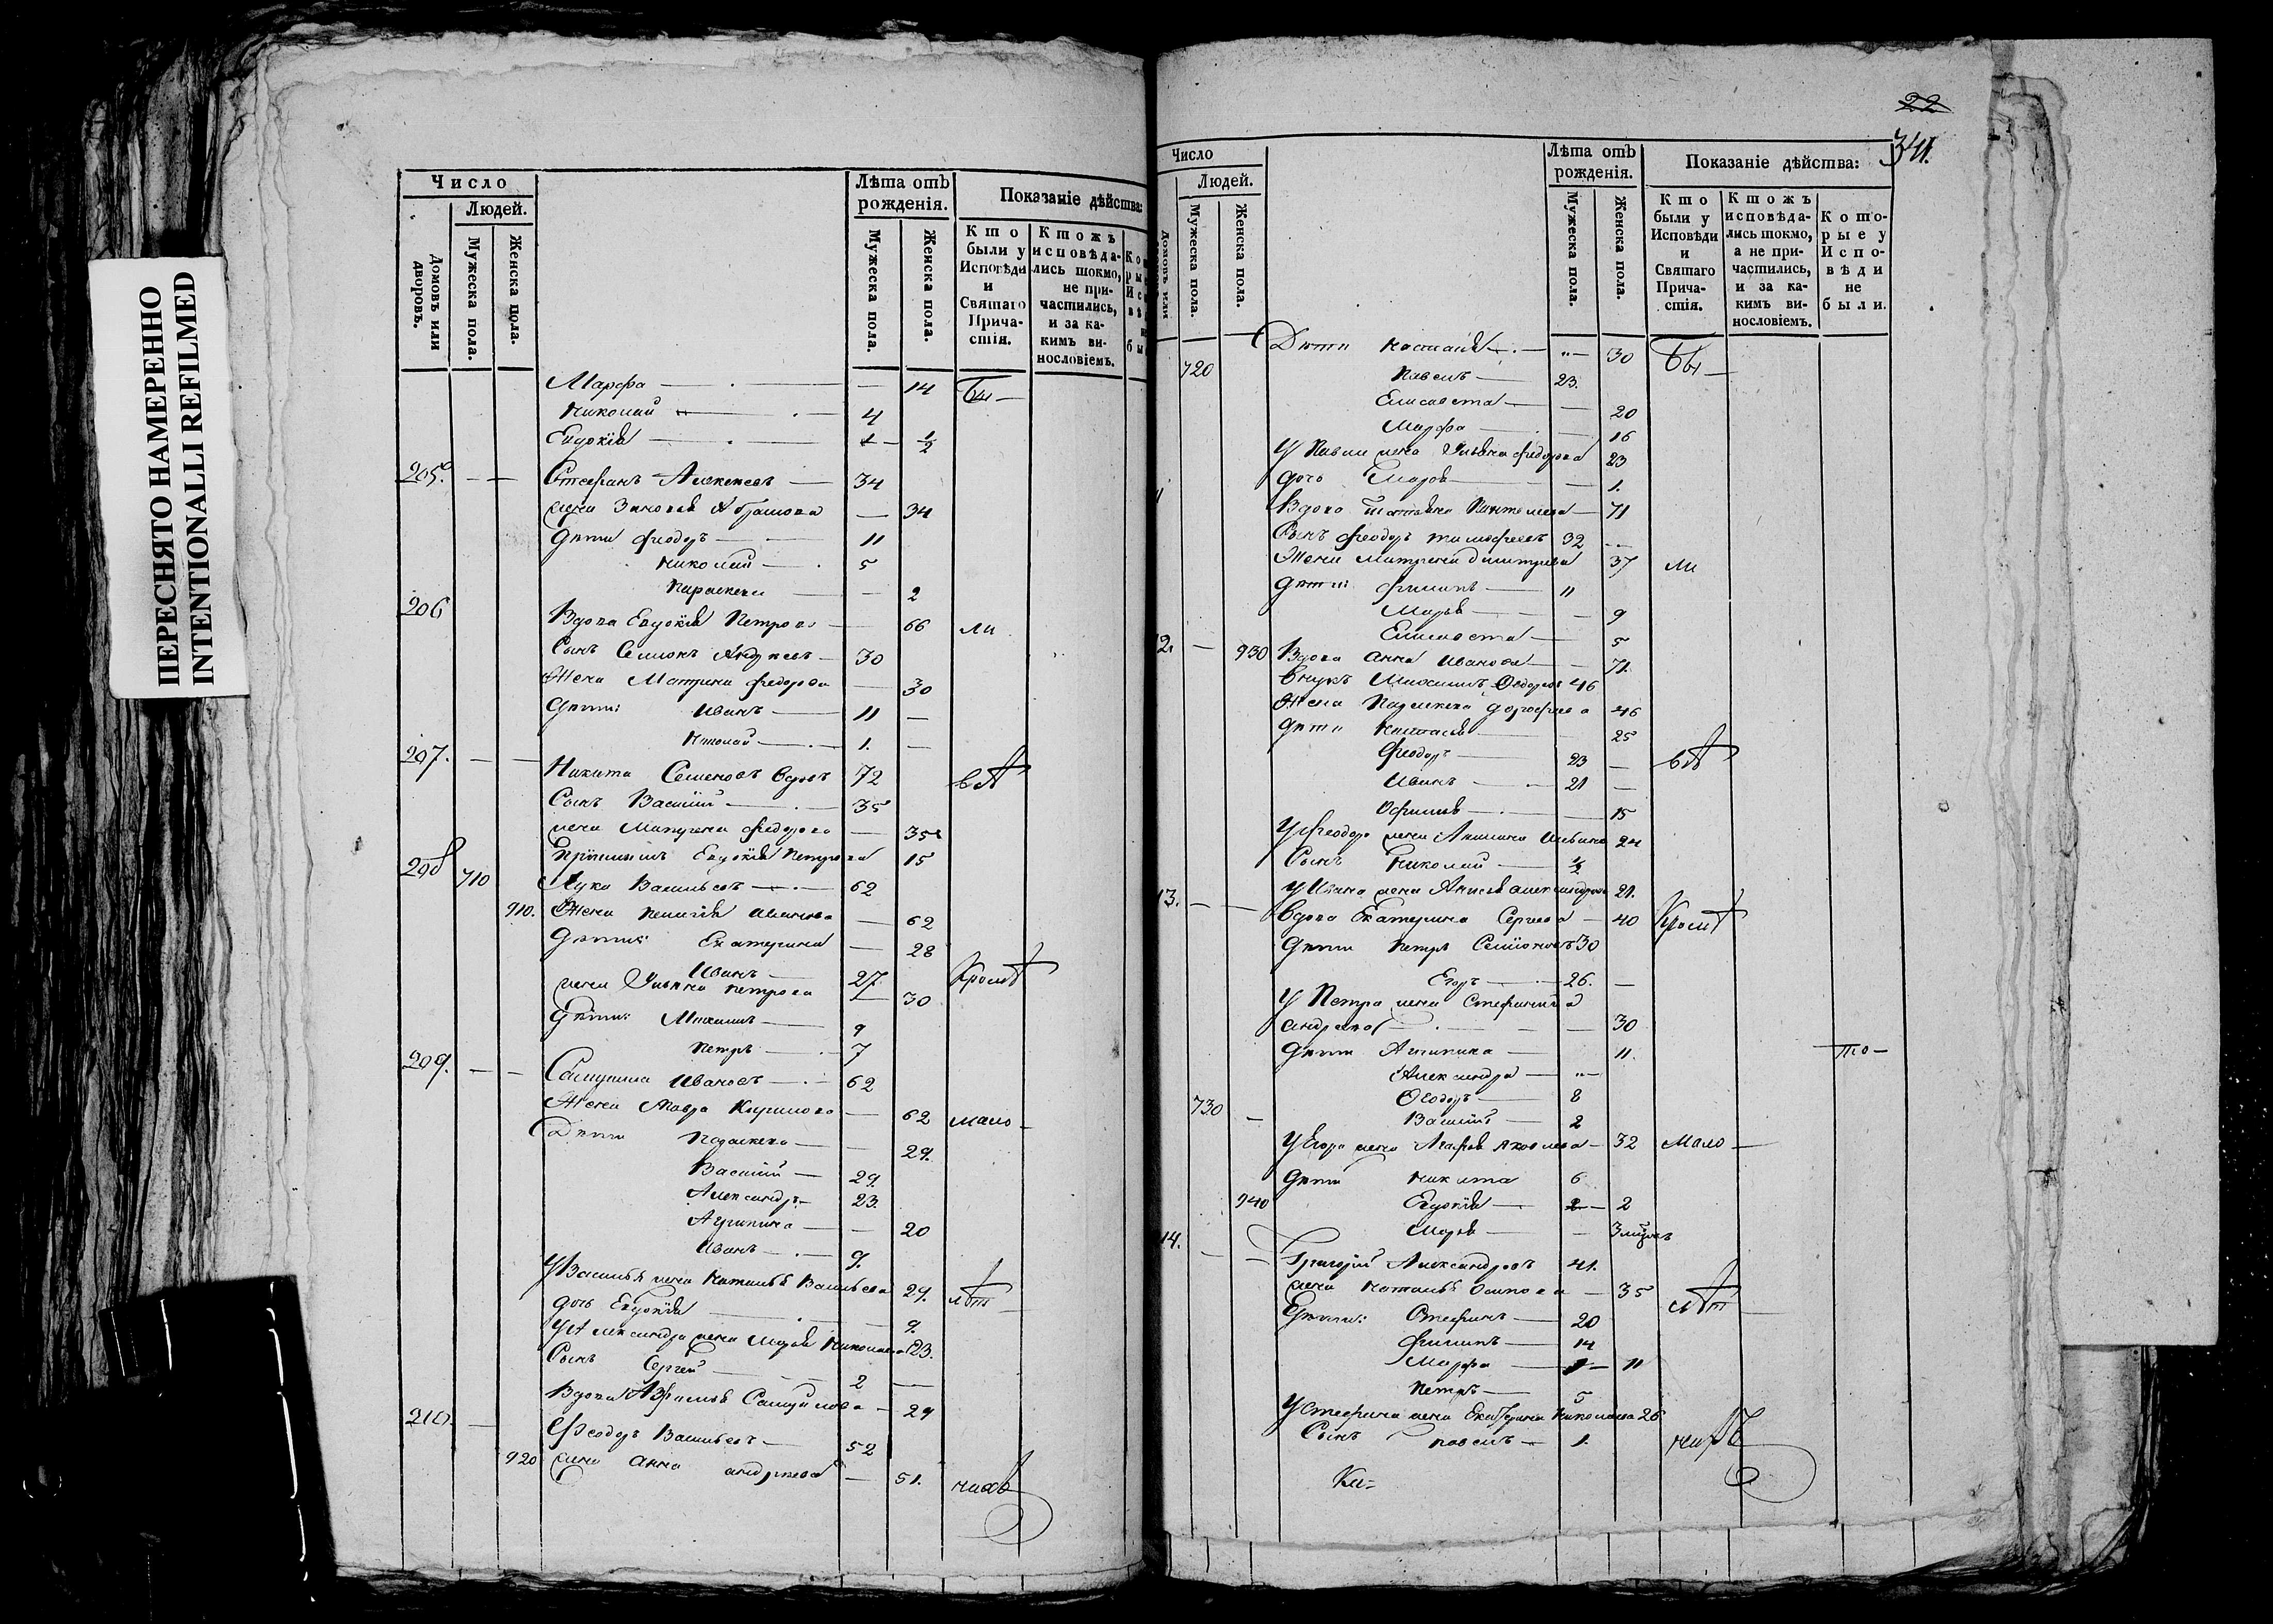 ПЕРЕСНЯТО НАМЕРЕННО
INTENTIONALLI REFILMED
Число
Людей.
Домовъ или дворовъ.
Мужеска пола.
Женска пола.
Лѣта отъ рожденія.
Мужеска пола.
Женска пола.
Показаніе дѣйства:
Кто были у Исповѣди и Святаго Причастія.
Ктожъ исповѣдались токмо, не причастились, и за какимъ винословіемъ.
Марфа 14 бы
Николай 4
Евдокія 1/2
205. Стефанъ Алексеевъ 34
жена Зиновья Абрамова 34
дѣти Феодоръ 11
Николай 5
Параскева 2
206 Вдова Евдокія Петрова 66 ли
Сынъ Семионъ Андреевъ 30
Жена Матрена Федорова 30
дѣти: Иванъ 11
Николай 1.
207. Никита Семеновъ вдовъ 72 вѣ
Сынъ Василій 35
жена Матрена Федорова 35
Евдокія Петрова 15
208 710 Лука Васильевъ 62
910. Жена Пелагія Иванова 62
дѣти: Екатерина 28
Иванъ 27 Кромѣ
жена Ульяна Петрова 30
дѣти: Михаилъ 9
Петръ 7
209. Самуила Ивановъ 62
Жена Мавра Кирилова 62 мало
Дѣти Параскева 29.
Василій 29.
Александръ 23.
Агрипина 20
Иванъ 9.
У Василья жена Наталья Васильева 29. лѣт
дочь Евдокія 9.
У Александра жена Марья Николаева 23.
Сынъ Сергей 2
Вдова Афимья Самуилова 29
210. Феодоръ Васильевъ 52
920 жена Анна Андреева 51.
22
341.
Число
Людей.
Домовъ или
Мужеска пола.
Женска пола.
Лѣта отъ рожденія.
Мужеска пола.
Женска пола.
Показаніе дѣйства:
Кто были у Исповѣди и Святаго Причастія.
Ктожъ исповѣдались токмо, а не причастились, и за какимъ винословіемъ.
Которые у Исповѣди не были.
Дѣти Настасія 30 бы
720 Павелъ 23.
Елисавета 20
Марфа 16
У Павла жена Ульяна Федорова 23
дочь Марья 1.
Вдова Татьяна 71
Сынъ Феодоръ Тимофеевъ 32
Жена Матрена Димитрева 37 ли
дѣти: Филипъ 11
Марья 9
Елисавета 5
12. 930 Вдова Анна Иванова 71.
внукъ Михаилъ Федоровъ 46
Жена Параскева Дорофеева 46
дѣти Настасья 25
Феодоръ 23 вѣ
Иванъ 21
Офимья 15
У Феодора жена Акилина Ильина 24
Сынъ Николай 1/2
У Ивана жена Анисья Александрова 21.
13. Вдова Екатерина Сергеева 40 Кромѣ
дѣти Петръ Семіоновъ 30
Егоръ 26.
У Петра жена Стефанида
30
дѣти Агрипина 11. то
Александра
Феодоръ 8
730 Василій 2
У Егора жена Агафья Яковлева 32 Мало
дѣти Никита 6
940 Евдокія 2
Марья 3 мѣсяц
14. Григорій Александровъ 41.
жена Наталья Осипова 35 лѣт
Дѣти: Стефанъ 20
Филипъ 14
Марфа 11
Петръ 5
У Стефана жена Екатерина Николаева 26
Сынъ Павелъ 1.